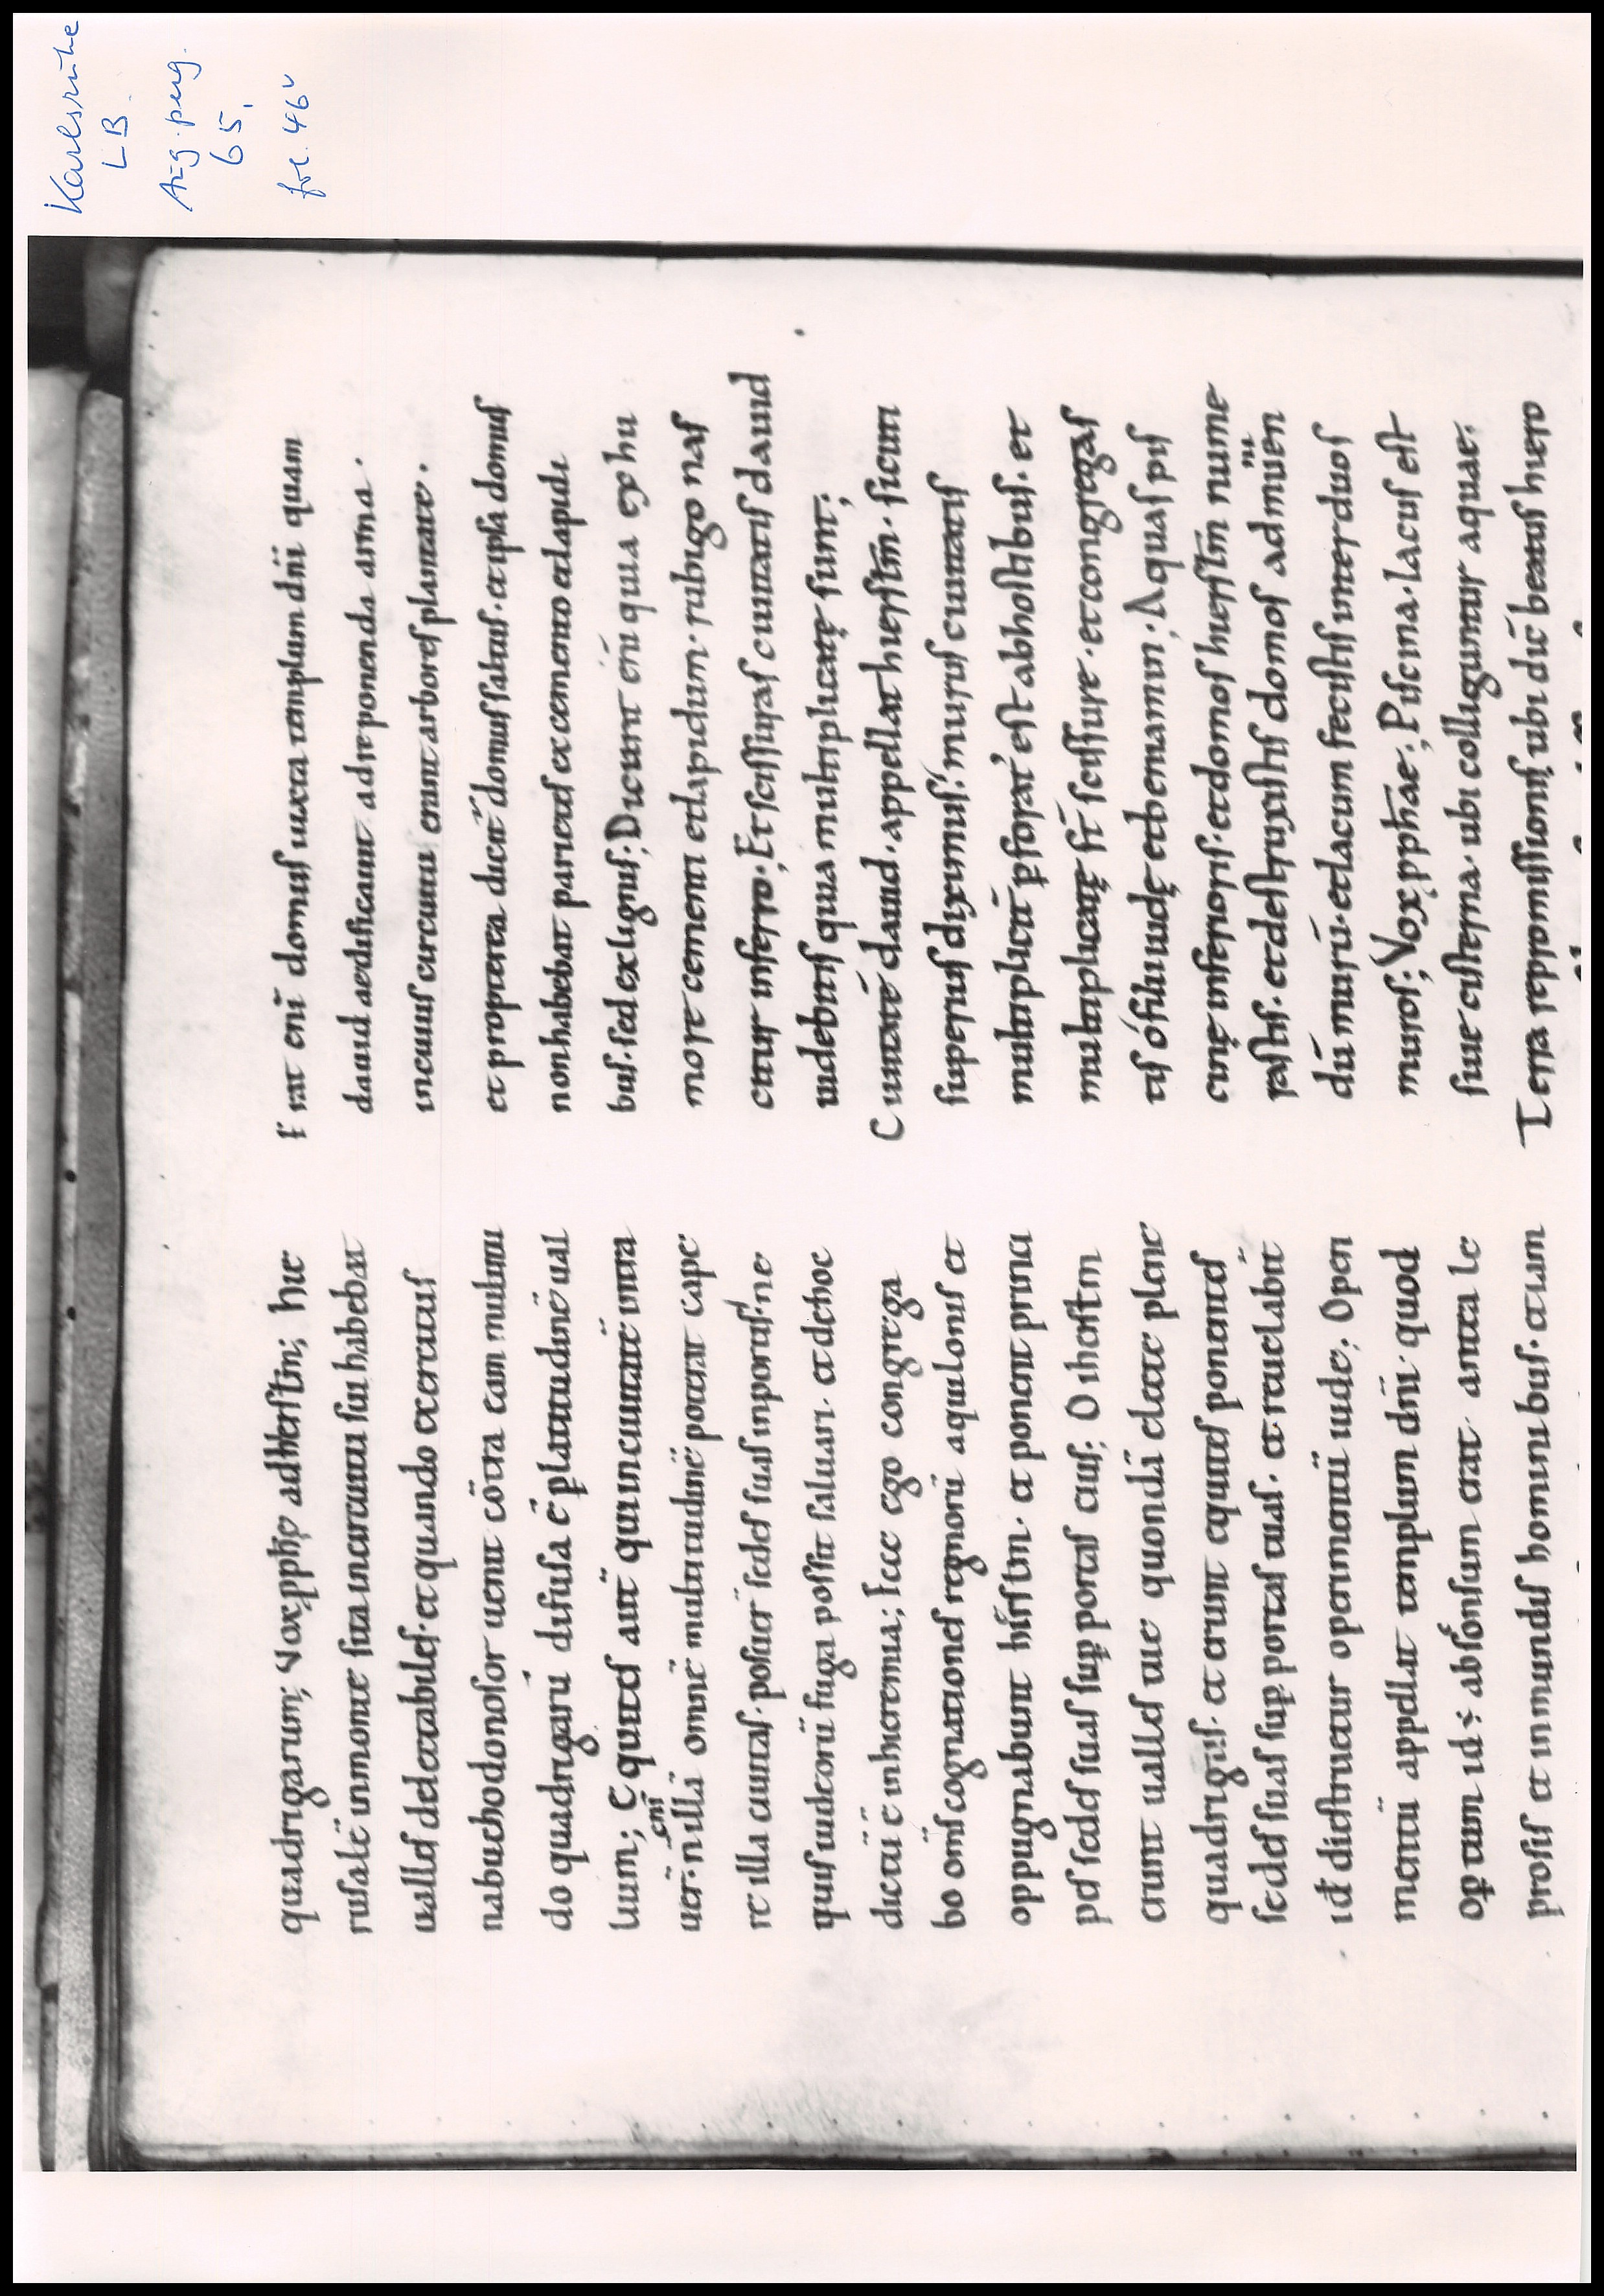 Karlsruhe
LB.
Aug. perg.
65,
fol. 46v
quadrigarum; Vox ꝓph̄ę adhierſtm; hie
ruſalē inmonte ſita incircuitu ſui habebat
ualleſ delectabileſ. et quando exercituſ
nabuchodonoſor uenit cōtra eam multitu
do quadrigarū difuſa ē ꝑlatitudinē ual
lium; Equiteſ autē quiincuitatē intra
uer̄. nullā enī omnē multitudinē poterat cape
re illa ciuitaſ. poſuer̄ ſedeſ ſuaſ inportiſ. ne
quiſ iudeorū fuga poſſit ſaluari. et dehoc
dictū ē inhieremia; Ecce ego congrega
bo om̄ſ cognationeſ regnorū aquiloniſ et
oppugnabunt hirſtm. et ponent princi
peſ ſedeſ ſuaſ ſuꝑ portaſ eiuſ; O iherſtm
erunt ualleſ tue quondā electe plene
quadrigiſ. et erunt equiteſ ponenteſ
ſedeſ ſuaſ ſuꝑ portaſ tuaſ. et reuelabit̄
id deſtruetur operimentū iude; Operi
mentū appellat templum dn̄i quod
oꝑtum id ÷ abſonſum erat antea le
profiſ et inmundiſ hominibuſ. etiam
Erat enī domuſ iuxta templum dn̄i quam
dauid aedificauit adreponenda arma.
incuiuſ circuitu erant arboreſ plantate.
et propterea dicit̄ domuſ ſaltuſ. et ipſa domuſ
nonhabebat parieteſ ex cemento etlapidi
buſ. ſed exligniſ; Dicunt enī quia ex hu
more cementi etlapidum. rubigo naſ
citur inferro; Et ſciſſuraſ ciuitatiſ dauid
uidebitiſ quia multiplicatę ſunt;
Ciuitatē dauid. appellat hierſtm. ſicuti
ſuperiuſ diximuſ. muruſ ciuitatiſ
multiplicit̄ ꝑforat' eſt abhoſtibuſ. et
multiplicatę ſt̄ ſciſſure. et congregaſ
tiſ ó filii iudę etbeniamin; Aquaſ piſ
cinę inferioriſ. et domoſ hierſtm nume
raſtiſ. et deſtruxiſtiſ domoſ ad muniēn
dū murū. et lacum feciſtiſ inter duoſ
muroſ; Vox ꝓph̄ae; Piſcina. lacuſ eſt
ſiue ciſterna. ubi colliguntur aquae.
Terra repromiſſioniſ ubi dic̄ beatuſ hiero